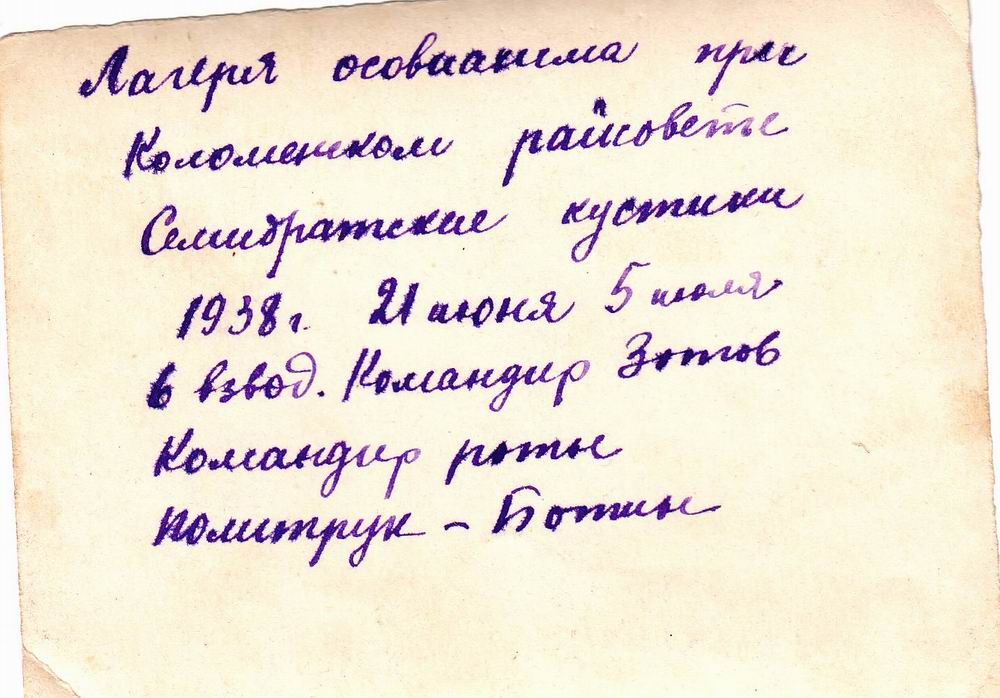 Лагеря осовиахима при
Коломенском райсовете
Семибратские кустики
1938г. 21 июня 5 июля
6 взвод. Командир Зотов
Командир роты
политрук –